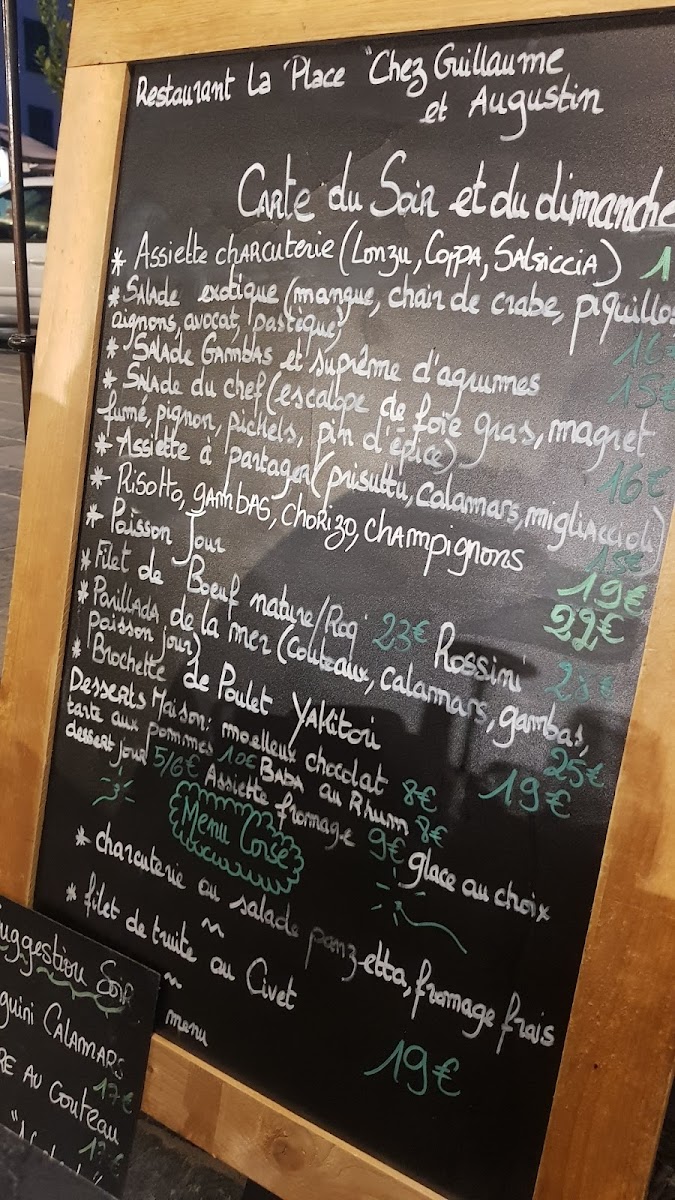 Restaurant La Place "Chez Guillaume
et Augustin
Carte du Soir et du dimanche
* Assiette charcuterie (Lonzu, Coppa, Salsiccia) 1
* Salade exotique (mangue, chair de crabe, piquillos
oignons, avocat, pastèque) 16€
* Salade Gambas et suprême d'agrumes 15€
* Salade du chef (escalope de foie gras, magret
fumé, pignon, pickels, pin d'épice) 16€
* Assiette à partager (prisuttu, calamars, migliaccioli)
15€
* Risotto, gambas, chorizo, champignons 19€
* Poisson Jour 22€
* Filet de Boeuf nature/Roq' 23€ Rossini 23€
* Parillada de la mer (Couteaux, calamars, gambas,
poisson jour) 25€
* Brochette de Poulet Yakitori 19€
Desserts Maison: moelleux chocolat 8€
tarte aux pommes 10€ Baba au Rhum 8€
dessert jour 5/6€ Assiette fromage 9€ glace au choix
Menu Corse
* charcuterie ou salade panzetta, fromage frais
~
* filet de truite ou Civet
~
menu 19€
uggestion Soir
guini Calamars
17€
RE AU Couteau